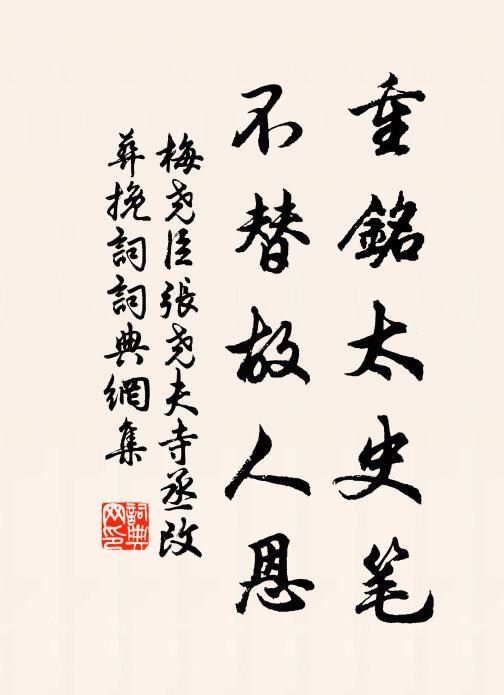 重銘太史笔
不替故人恩
梅尧臣張尧夫寺丞改
葬挽詞詞典網集
詞典
网印